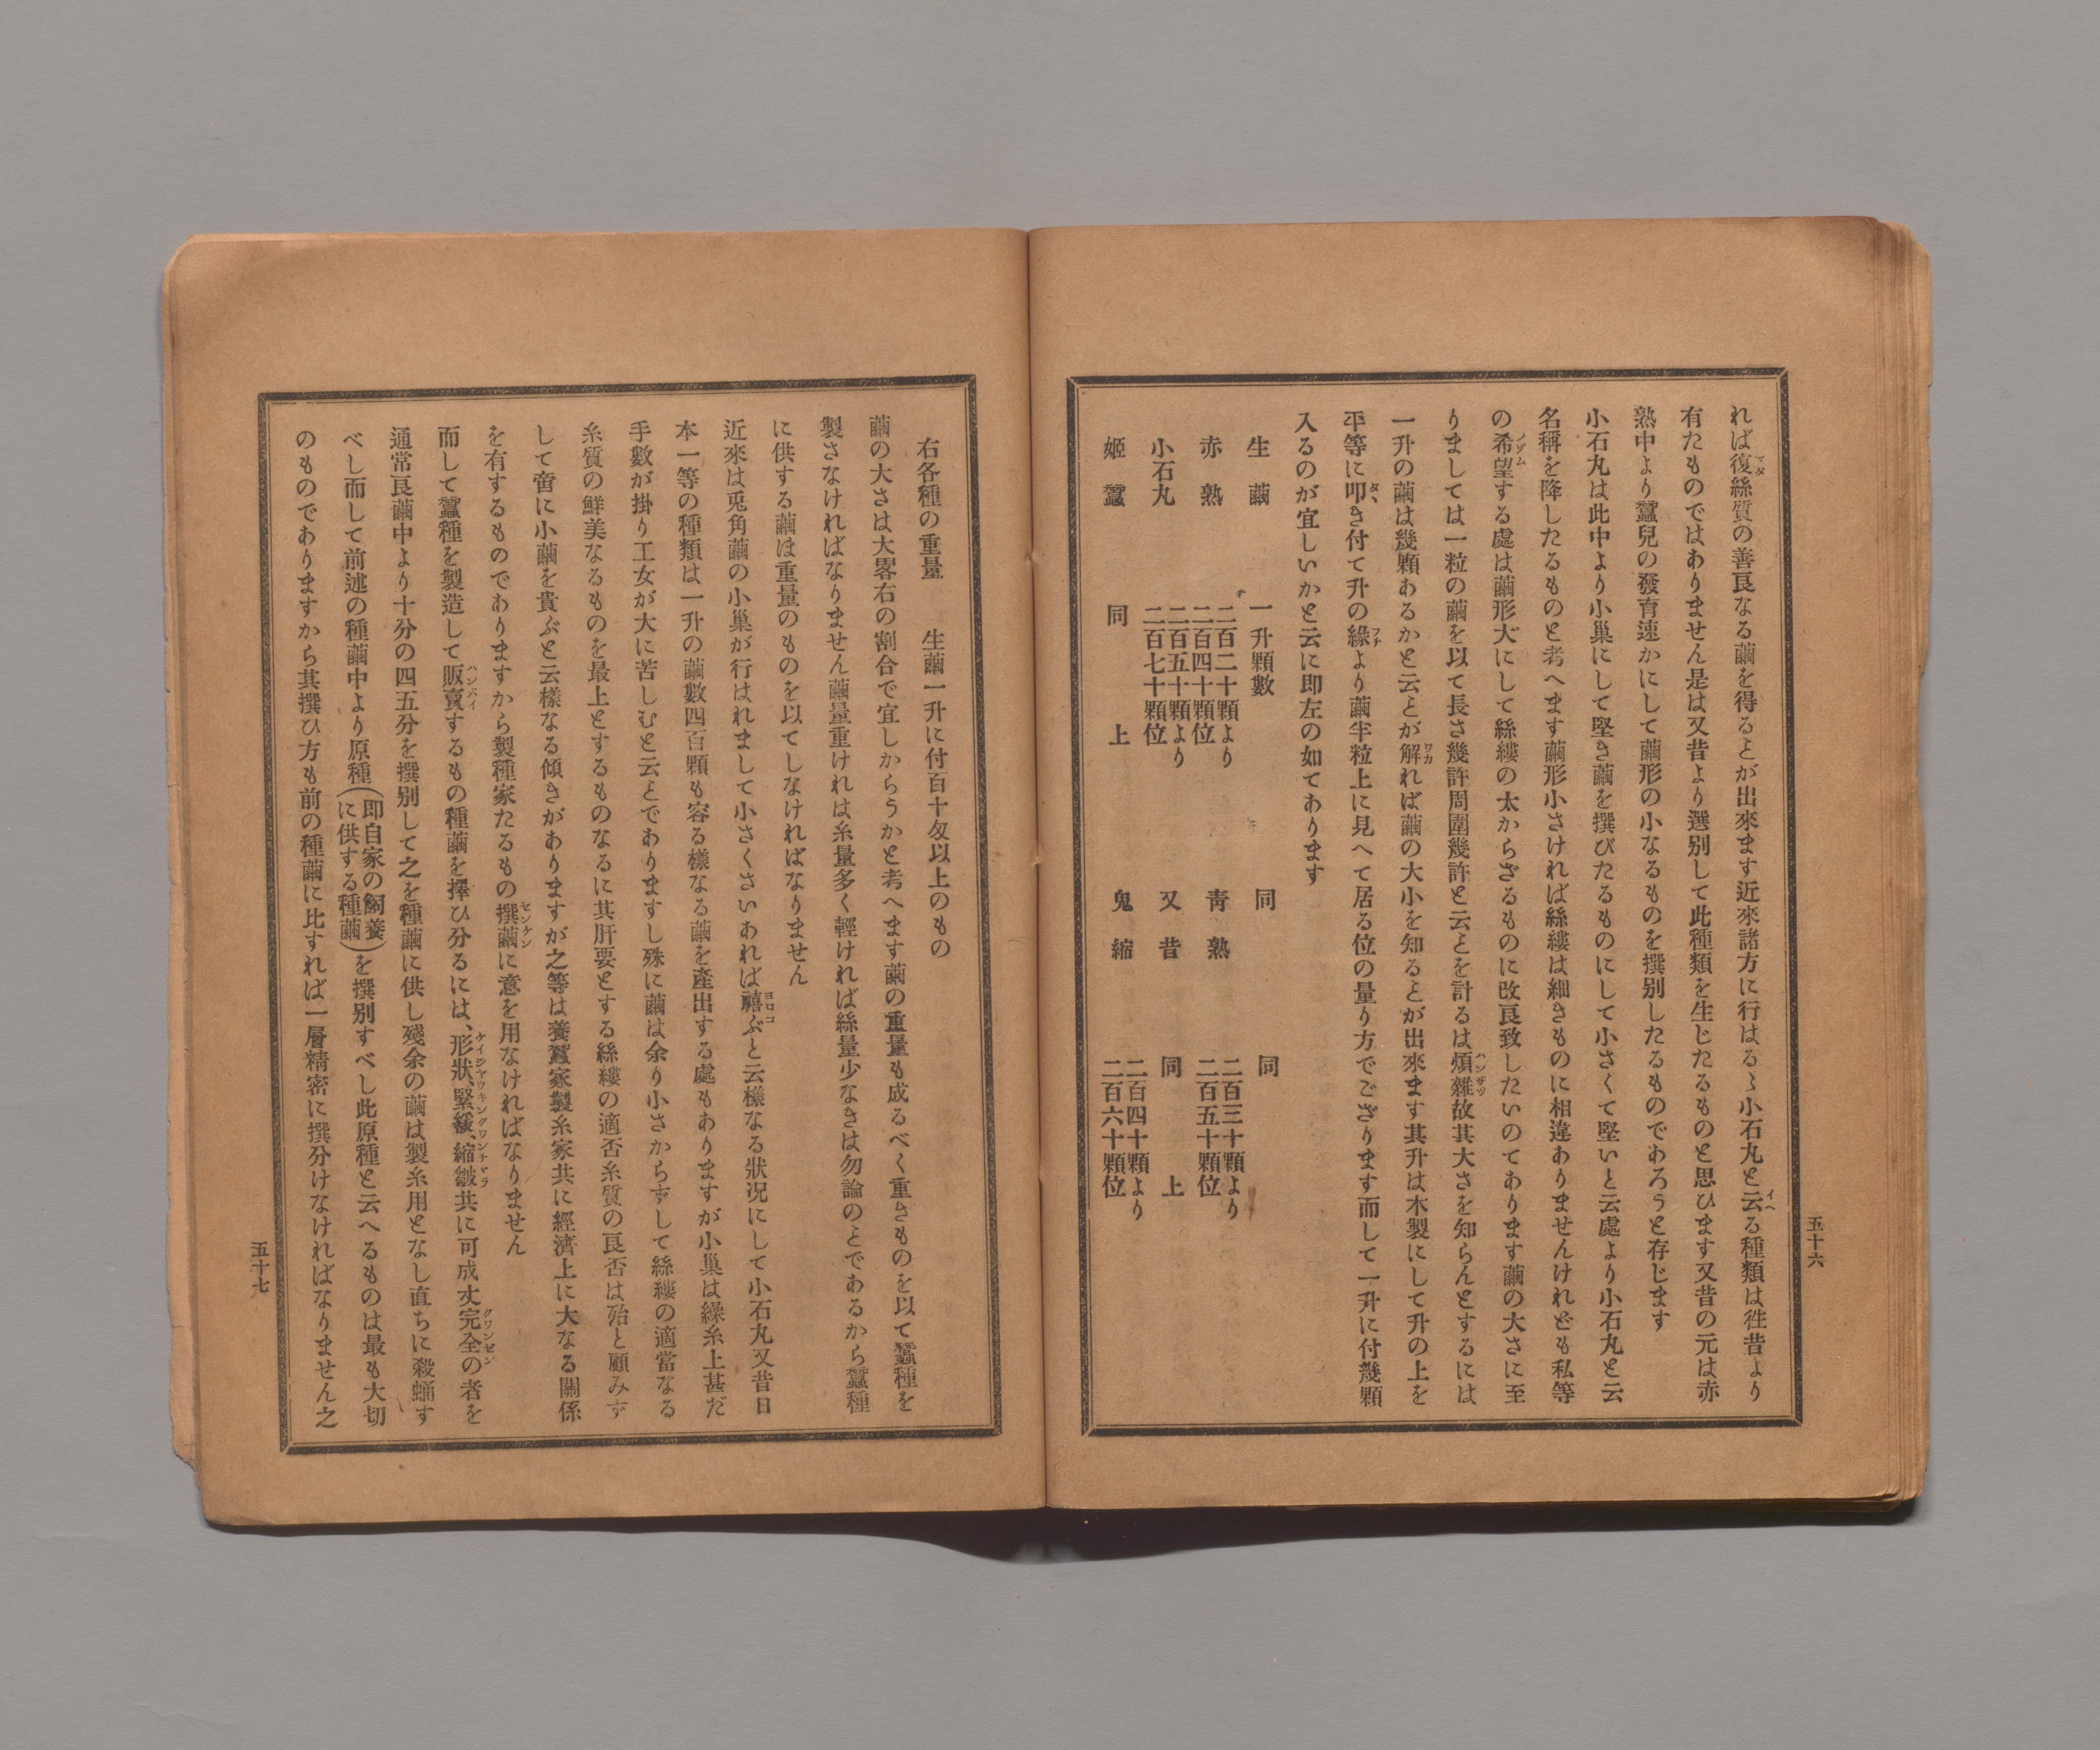 れば復絲質の善良なる繭を得るとが出來ます近來諸方に行はるゝ小石丸と云る種類は徃昔より
マタ
イヘ
有たものではありません是は又昔より選別して此種類を生じたるものと思ひます又昔の元は赤
熟中より蠶兒の發育速かにして繭形の小なるものを撰別したるものであろうと存じます
小石丸は此中より小巢にして堅き繭を撰びたるものにして小さくて堅いと云處より小石丸と云
名稱を降したるものと考へます繭形小さければ絲縷は細きものに相違ありませんけれども私等
の希望する處は繭形大にして絲縷の太からざるものに改良致したいのてあります繭の大さに至
ノゾム
りましては一粒の繭を以て長さ幾許周圍幾許と云とを計るは煩雜故其大さを知らんとするには
ハンザツ
一升の繭は幾顆あるかと云とが解れば繭の大小を知るとが出來ます其升は木製にして升の上を
ワカ
平等に叩き付て升の緣より繭半粒上に見へて居る位の量り方でござります而して一升に付幾顆
タヽ
フチ
入るのが宜しいかと云に即左の如てあります
生繭 一升顆數 同 同
赤熟 二百二十顆より二百四十顆位 靑熟 二百三十顆より二百五十顆位
小石丸 二百五十顆より二百七十顆位 又昔 同上
姬蠶 同上 鬼縮 二百四十顆より二百六十顆位
五十六
右各種の重量 生繭一升に付百十匁以上のもの
繭の大さは大畧右の割合で宜しからうかと考へます繭の重量も成るべく重きものを以て蠶種を
製さなければなりません繭量重けれは糸量多く輕ければ絲量少なきは勿論のとであるから蠶種
に供する繭は重量のものを以てしなければなりません
近來は兎角繭の小巢が行はれまして小さくさいあれば禧ぶと云樣なる狀況にして小石丸又昔日
ヨロコ
本一等の種類は一升の繭數四百顆も容る樣なる繭を產出する處もありますが小巢は繰糸上甚だ
手數が掛り工女が大に苦しむと云とでありますし殊に繭は余り小さからずして絲縷の適當なる
糸質の鮮美なるものを最上とするものなるに其肝要とする絲縷の適否糸質の良否は殆と顧みず
して啻に小繭を貴ぶと云樣なる傾きがありますが之等は養蠶家製糸家共に經濟上に大なる關係
を有するものでありますから製種家たるもの撰繭に意を用なければなりません
センケン
而して蠶種を製造して販賣するもの種繭を擇ひ分るには、形狀、緊緩、縮皺共に可成丈完全の者を
ハンバイ
ケイジヤウキングワンチヂラ
クワンゼン
通常良繭中より十分の四五分を撰別して之を種繭に供し殘余の繭は製糸用となし直ちに殺蛹す
べし而して前述の種繭中より原種(即自家の飼養に供する種繭)を撰別すべし此原種と云へるものは最も大切
のものでありますから其撰ひ方も前の種繭に比すれば一層精密に撰分けなければなりません之
五十七